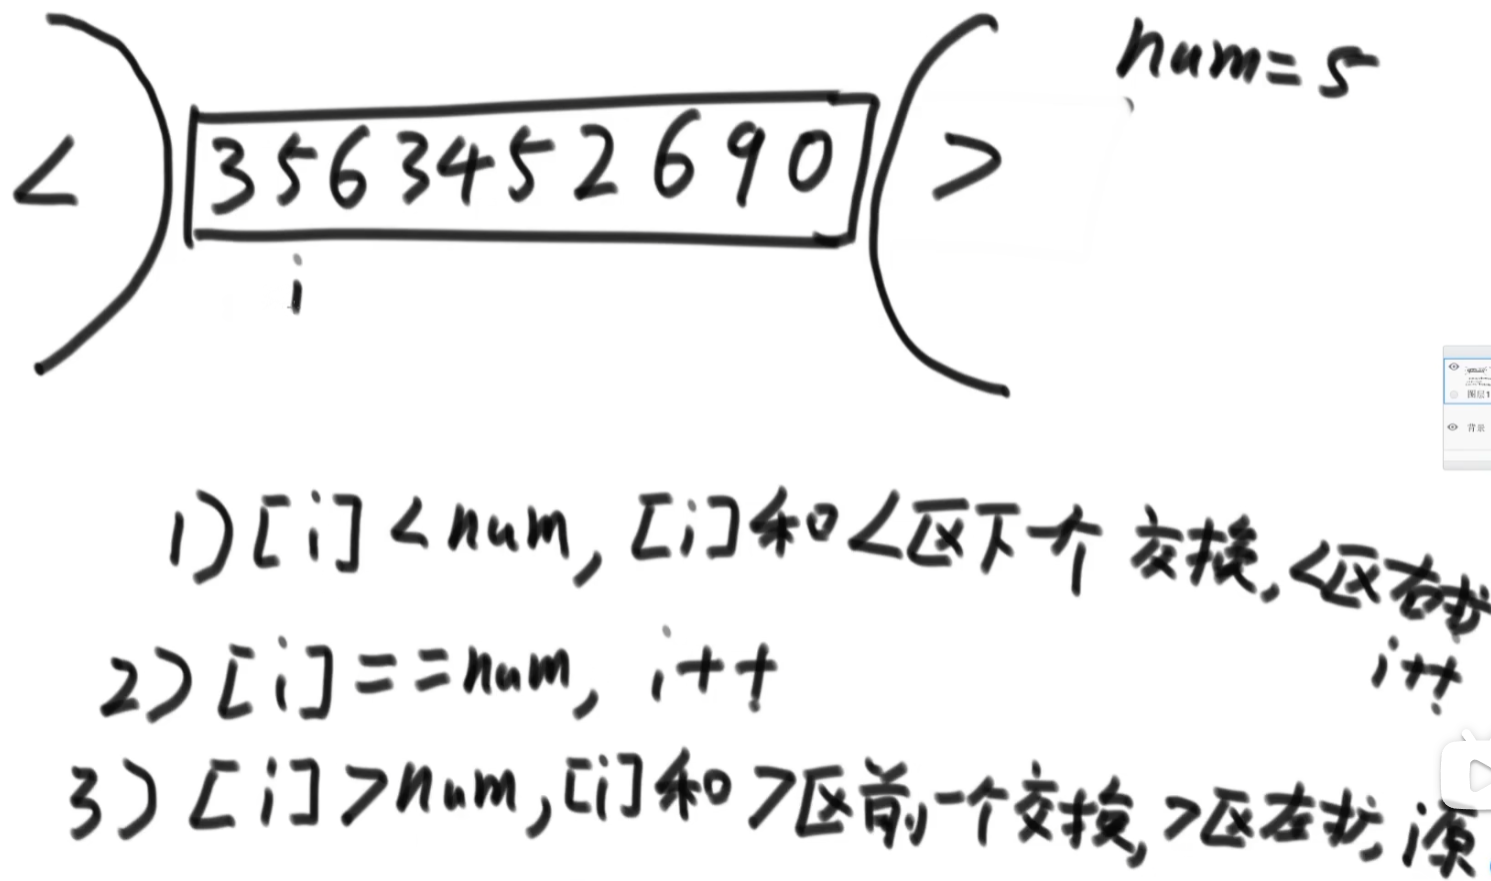 num=5
< 3 5 6 3 4 5 2 6 9 0 >
i
图层1
背景
1) [i] < num, [i]和<区下一个交换, <区右扩
i++;
2) [i] == num, i++;
3) [i] > num, [i]和>区前一个交换, >区左扩, i原